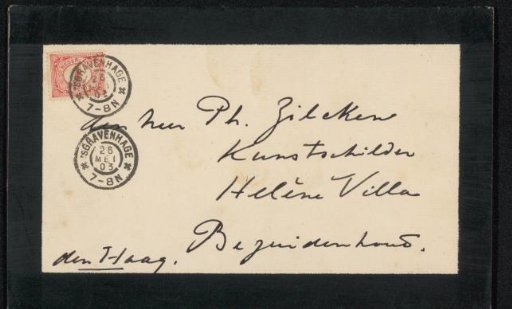 'SGRAVENHAGE
28
MEI
03
7-8N
'SGRAVENHAGE
28
MEI
03
7-8N
den heer Ph. Zilcken
Kunstschilder
Helène Villa
Bezuidenhout.
den Haag.